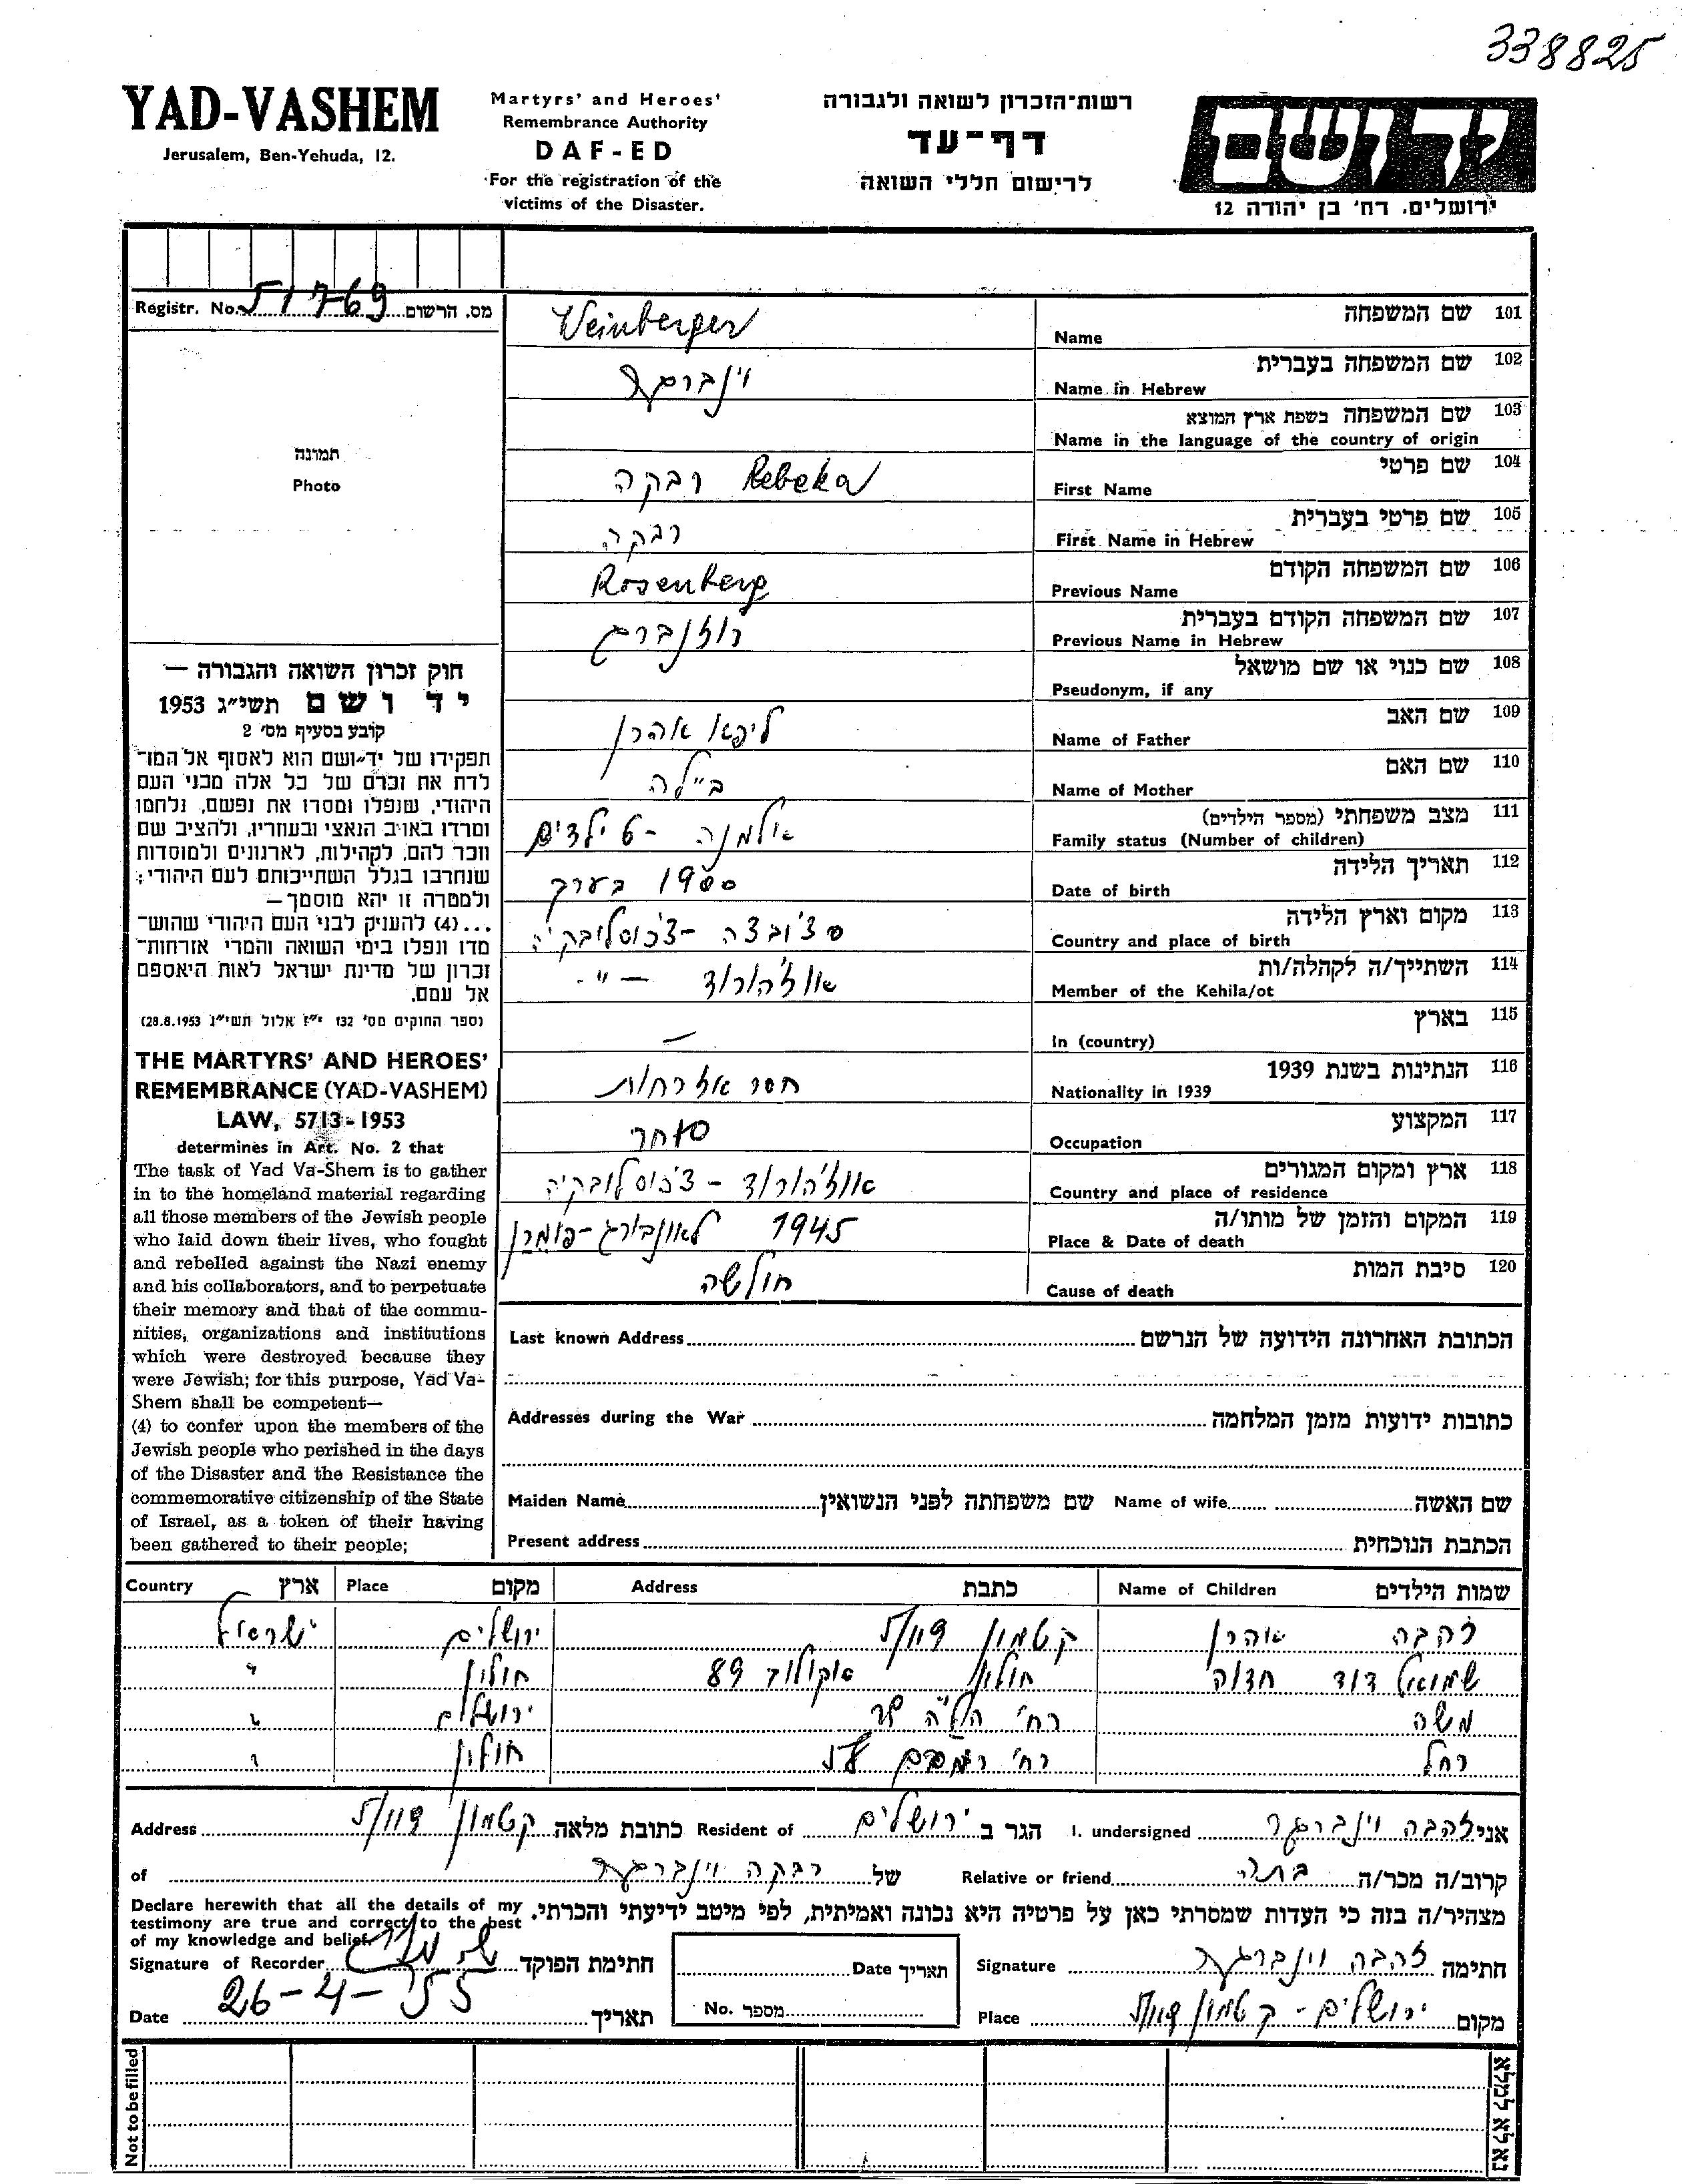 338825
YAD-VASHEM
Jerusalem, Ben-Yehuda, 12.
Martyrs' and Heroes'
Remembrance Authority
DAF-ED
For the registration of the
victims of the Disaster.
רשות-הזכרון לשואה ולגבורה
דף-עד
לרישום חללי השואה
יד ושם
ירושלים, רח' בן יהודה 12
Registr. No. 51769 מס. הרשום
תמונה
Photo
חוק זכרון השואה והגבורה —
יד ושם תשי״ג 1953
קובע בסעיף מס' 2
תפקידו של יד״ושם הוא לאסוף אל המו־
לדת את זכרם של כל אלה מבני העם
היהודי, שנפלו ומסרו את נפשם, נלחמו
ומרדו באויב הנאצי ובעוזריו, ולהציב שם
וזכר להם, לקהילות, לארגונים ולמוסדות
שנחרבו בגלל השתייכותם לעם היהודי;
ולמטרה זו יהא מוסמך —
...(4) להעניק לבני העם היהודי שהוש־
מדו ונפלו בימי השואה והמרי אזרחות־
זכרון של מדינת ישראל לאות היאספם
אל עמם.
(ספר החוקים מס' 132 י״ז אלול תשי״ג 28.8.1953)
THE MARTYRS' AND HEROES'
REMEMBRANCE (YAD-VASHEM)
LAW, 5713-1953
determines in Art. No. 2 that
The task of Yad Va-Shem is to gather
in to the homeland material regarding
all those members of the Jewish people
who laid down their lives, who fought
and rebelled against the Nazi enemy
and his collaborators, and to perpetuate
their memory and that of the commu-
nities, organizations and institutions
which were destroyed because they
were Jewish; for this purpose, Yad Va-
Shem shall be competent—
(4) to confer upon the members of the
Jewish people who perished in the days
of the Disaster and the Resistance the
commemorative citizenship of the State
of Israel, as a token of their having
been gathered to their people;
101 שם המשפחה Name Weinberger
102 שם המשפחה בעברית Name in Hebrew וינברגר
103 שם המשפחה בשפת ארץ המוצא Name in the language of the country of origin
104 שם פרטי First Name רבקה Rebeka
105 שם פרטי בעברית First Name in Hebrew רבקה
106 שם המשפחה הקודם Previous Name Rosenberg
107 שם המשפחה הקודם בעברית Previous Name in Hebrew רוזנברג
108 שם כנוי או שם מושאל Pseudonym, if any
109 שם האב Name of Father ליפא אהרן
110 שם האם Name of Mother ביילה
111 מצב משפחתי (מספר הילדים) Family status (Number of children) אלמנה - 6 ילדים
112 תאריך הלידה Date of birth 1900 בערך
113 מקום וארץ הלידה Country and place of birth צ'כוסלובקיה
114 השתייך/ה לקהלה/ות Member of the Kehila/ot אוז'הורוד — "
115 בארץ In (country) —
116 הנתינות בשנת 1939 Nationality in 1939 חסר אזרחות
117 המקצוע Occupation סוחר
118 ארץ ומקום המגורים Country and place of residence אוז'הורוד - צ'כוסלובקיה
119 המקום והזמן של מותו/ה Place & Date of death 1945 לאונבורג-פומרן
120 סיבת המות Cause of death חולשה
Last known Address הכתובת האחרונה הידועה של הנרשם
Addresses during the War כתובות ידועות מזמן המלחמה
Maiden Name שם משפחתה לפני הנשואין Name of wife שם האשה
Present address הכתבת הנוכחית
Country ארץ Place מקום Address כתבת Name of Children שמות הילדים
זהבה אהרן קטמון ירושלים ישראל
שמואל דוד חדוה חולון סוקולוב 89 חולון "
משה רח' הל"ה ירושלים "
רחל רח' חולון "
אני זהבה וינברגר I. undersigned הגר ב ירושלים Resident of כתובת מלאה קטמון Address
קרוב/ה מכר/ה בתה Relative or friend של רבקה וינברגר of
מצהיר/ה בזה כי העדות שמסרתי כאן על פרטיה היא נכונה ואמיתית, לפי מיטב ידיעתי והכרתי.
Declare herewith that all the details of my
testimony are true and correct to the best
of my knowledge and belief.
חתימה זהבה וינברגר Signature
Date תאריך
No. מספר
Signature of Recorder חתימת הפוקד
מקום ירושלים - קטמון Place
Date 26-4-55 תאריך
Not to be filled
נא לא למלא